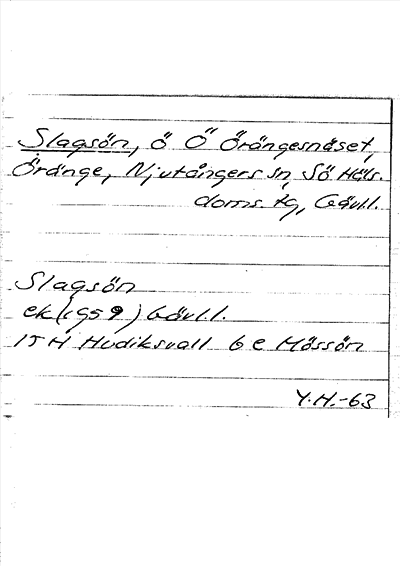 Slagsön, ö Ö Örängesnäset,
Öränge, Njutångers sn, Sö Häls.
doms tg, Gävl.
Slagsön
ek (1959) Gävl.
15 H Hudiksvall 6 e Mössön
Y.H.-63